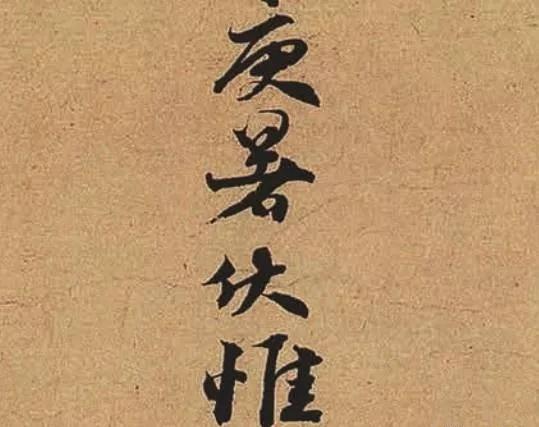 庚暑伏惟